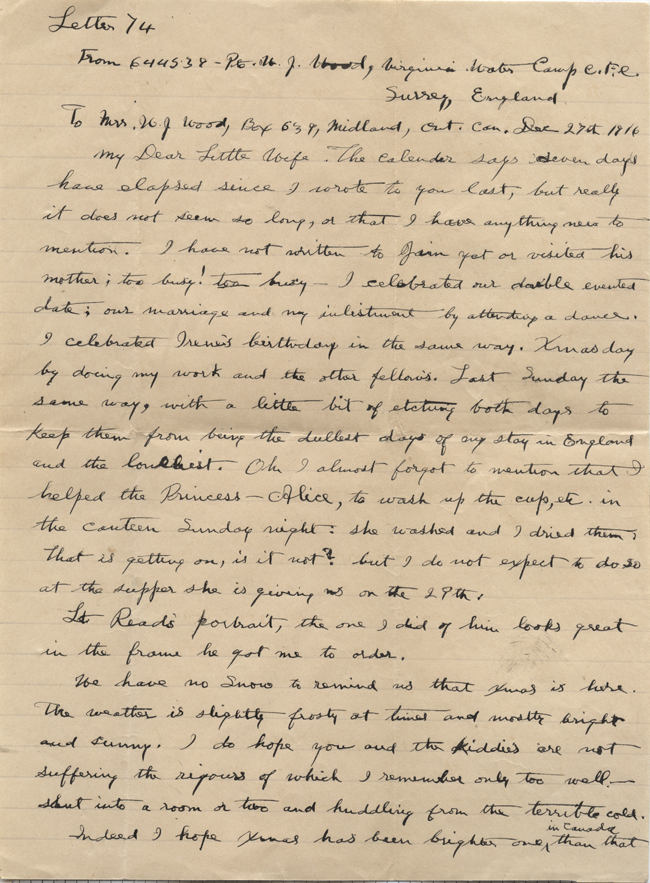 Letter 74
From 644538 - Pte. W. J. Wood, Virginia Water Camp C.F.C.
Surrey, England
To Mrs. W. J Wood, Box 639, Midland, Ont. Can. Dec 27th 1916
My Dear Little Wife. The calender says seven days
have elapsed since I wrote to you last, but really
it does not seem so long, or that I have anything new to
mention. I have not written to yet or visited his
mother; too busy! too busy - I celebrated our double evented
date; our marriage and my inlistment by attending a dance.
I celebrated Irene's birthday in the same way. Xmas day
by doing my work and the other fellow's. Last Sunday the
same way, with a little bit of etching both days to
keep them from being the dullest days of my stay in England
and the lonliest. Oh I almost forgot to mention that I
helped the Princess - Alice, to wash up the cup, etc. in
the canteen Sunday night: she washed and I dried them;
that is getting on, is it not? but I do not expect to do so
at the supper she is giving us on the 29th.
Lt Read's portrait, the one I did of him looks great
in the frame he got me to order.
We have no Snow to remind us that Xmas is here.
The weather is slightly frosty at times and mostly bright
and sunny. I do hope you and the kiddies are not
suffering the rigours of which I remember only too well. -
shut into a room or two and huddling from the terrible cold.
in Canada
Indeed I hope Xmas has been brighter one, than that